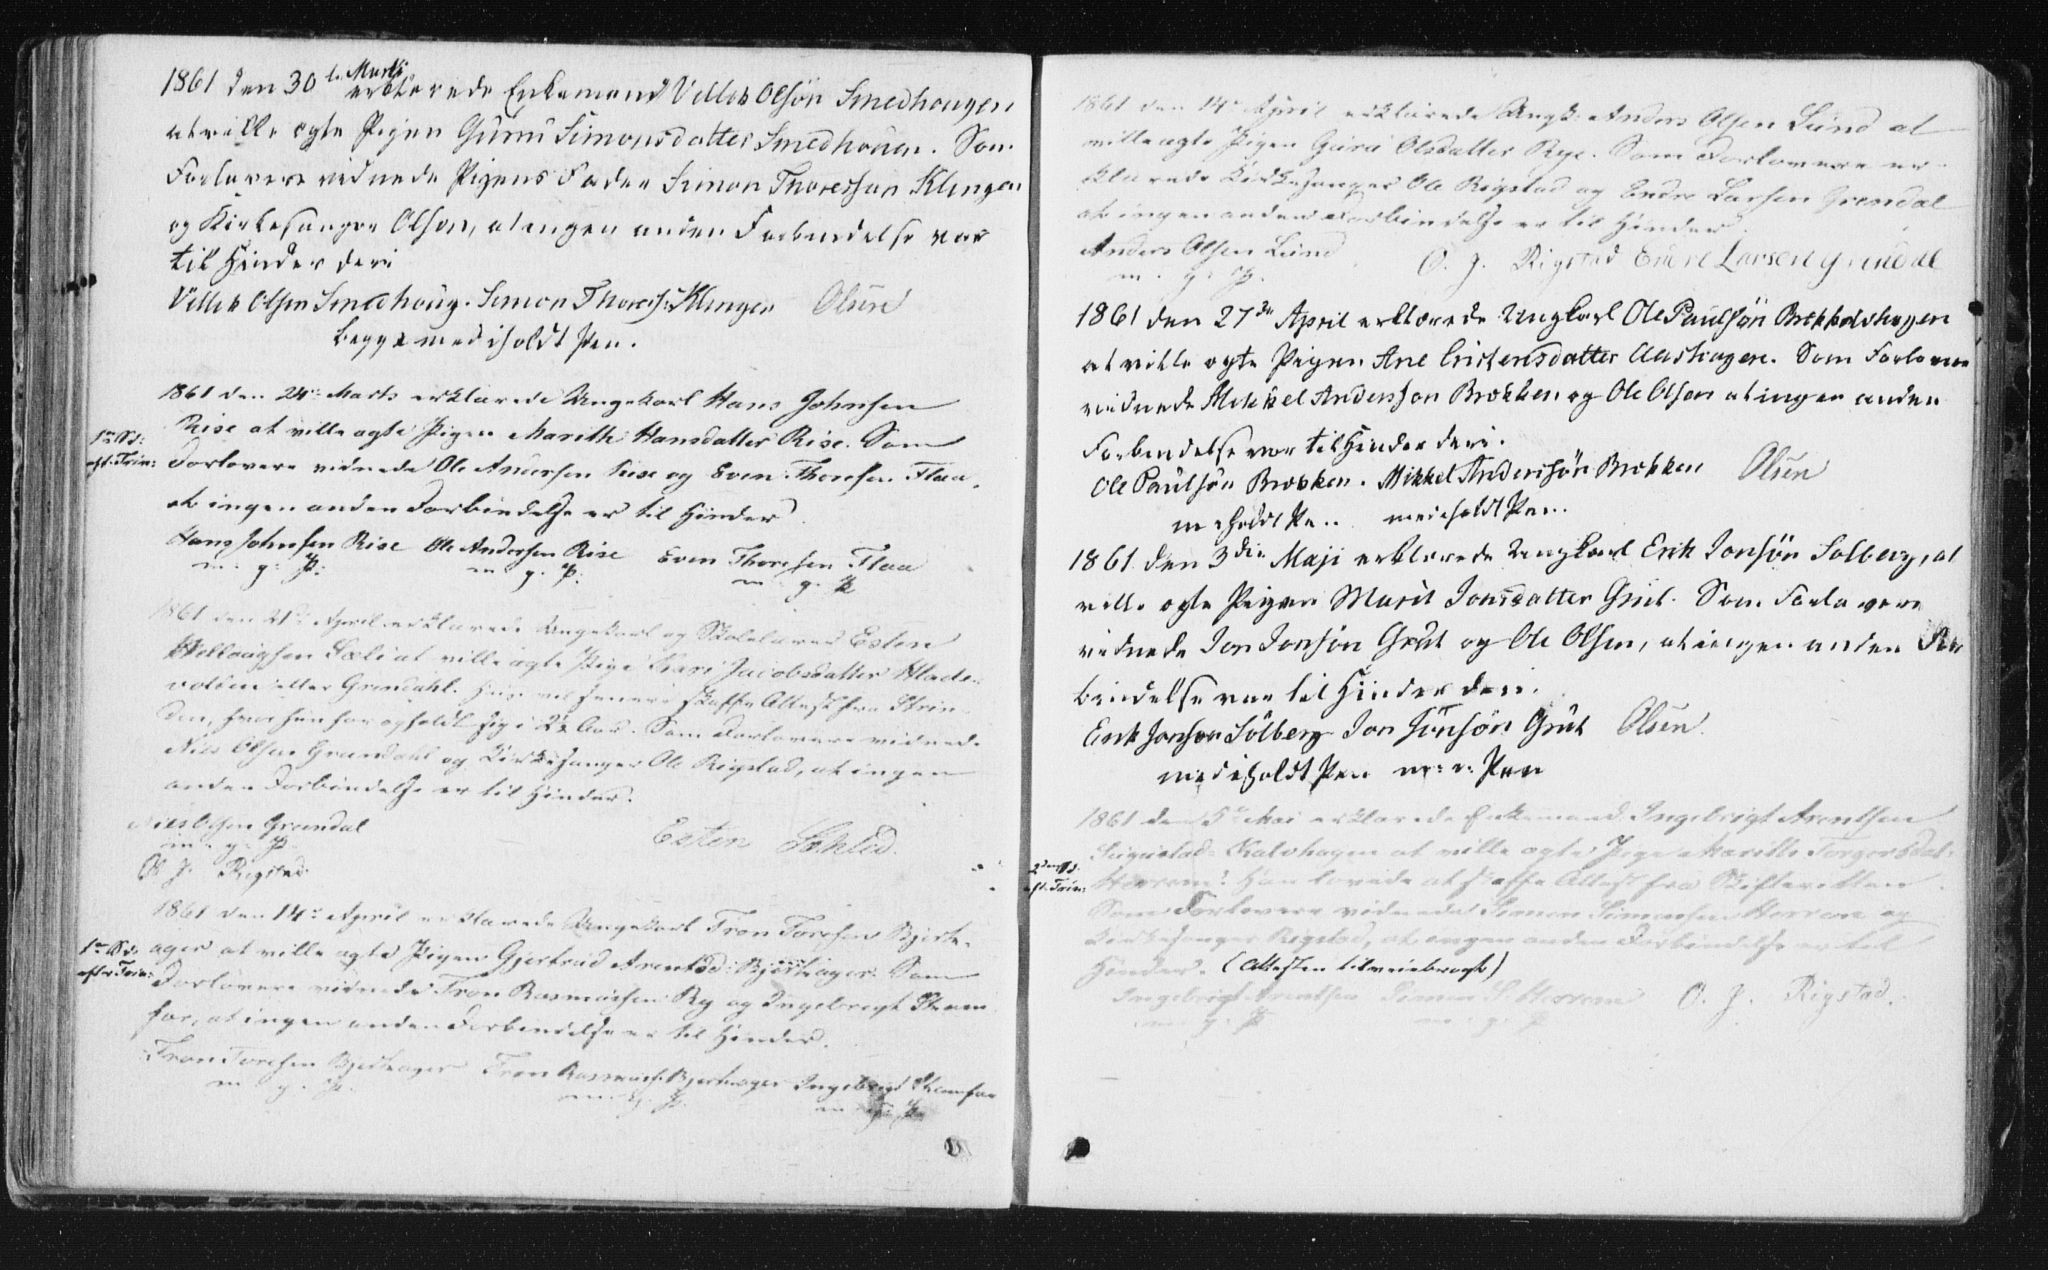 1861 den 30te Marts
erklærede Enkemand Villek Olsön Smedhougen
at ville ægte Pigen Guru Simonsdatter Smedhouen. Som
Forlovere vidnede Pigens Fader Simon Thoressøn Klingen
og Kirkesanger Olsen, at ingen anden Forbindelse var
til Hinder deri
Villek Olsen Smedhoug. Simon Thoress: Klingen Olsen
begge med iholdt Pen.
1861 den 24de Marts erklærede Ungekarl Hans Johnsen
Rise at ville ægte Pigen Marith Hansdatter Rise. Som
1ste Sd:
eft. Trin:
Forlovere vidnede Ole Andersen Rise og Even Thoresen Flaa,
at ingen anden Forbindelse er til Hinder.
Hans Johnsen Rise Ole Andersen Rise Even Thoresen Flaa
m. g. P. m. g. P. m. g. P.
1861 den 21de April erklærede Ungekarl og Skolelærer Esten
Sæli at ville ægte Pige Kari Jacobsdatter
volden eller Grendahl. Hun vil senere skaffe Attest fra Strin-
den, hvor hun har opholdt sig i 2½ Aar. Som Forlovere vidnede
Niels Olsen Grændahl og Kirkesanger Ole Rigstad, at ingen
anden Forbindelse er til Hinder.
Niels Olsen Grændal Esten
m. g. P.
O. J. Rigstad
1861 den 14de April erklærede Ungekarl Tron Toresen Bjerk-
1ste Sd.
efter Trin:
ager at ville ægte Pigen Gjertrud Arentsd: Bjerkager. Som
Forlovere vidnede Tron Rasmussen Ry og Ingebrigt Stam-
for, at ingen anden Forbindelse er til Hinder.
Tron Toresen Bjerkager Tron Rasmuss. Bjerkager Ingebrigt
m. g. P. m. g. P. m. g. P.
1861 den 14de April erklærede Ungk: Anders Olsen Lund at
ville ægte Pigen Guru Olsdatter Rye. Som Forlovere er-
klærede Kirkesanger Ole Rigstad og Endre Larsen Grendal
at ingen anden Forbindelse er til Hinder.
Anders Olsen Lund O. J. Rigstad Endre Larsen Grendal
m. g. P.
1861 den 27de April erklærede Ungkarl Ole Paulsön Brækkeshagen
at ville ægte Pigen Ane Cristensdatter Aashagen. Som Forlovere
vidnede Mikkel Anderssøn Brækken og Ole Olsen at ingen anden
Forbindelse var til Hinder deri.
Ole Paulsøn Brækken. Mikkel Anderssön Brækken Olsen
m iholdt Pen. med iholdt Pen.
1861 den 3die Maji erklærede Ungkarl Erik Jonsøn Solberg, at
ville ægte Pigen Marit Jonsdatter Grut. Som Forlovere
vidnede Jon Jonsøn Grut og Ole Olsen, at ingen anden For
bindelse var til Hinder deri.
Erik Jonsøn Solberg Jon Jonsön Grut Olsen
med iholdt Pen m: i: Pen
1861 den 5te Mai erklærede Enkemand Ingebrigt Arentsen
Kalvhagen at ville ægte Pige Marith Torgersdat:
2den Sd.
eft. Trin:
Horrem. Han lovede at skaffe Attest fra Skifteretten.
Som Forlovere vidnede Simen Simensen Horrem og
Kirkesanger Rigstad, at ingen anden Forbindelse er til
Hinder. (Attesten tilveiebragt)
Ingebrigt Arentsen Simen S. Horrem O. J. Rigstad.
m. g. P. m. g. P.